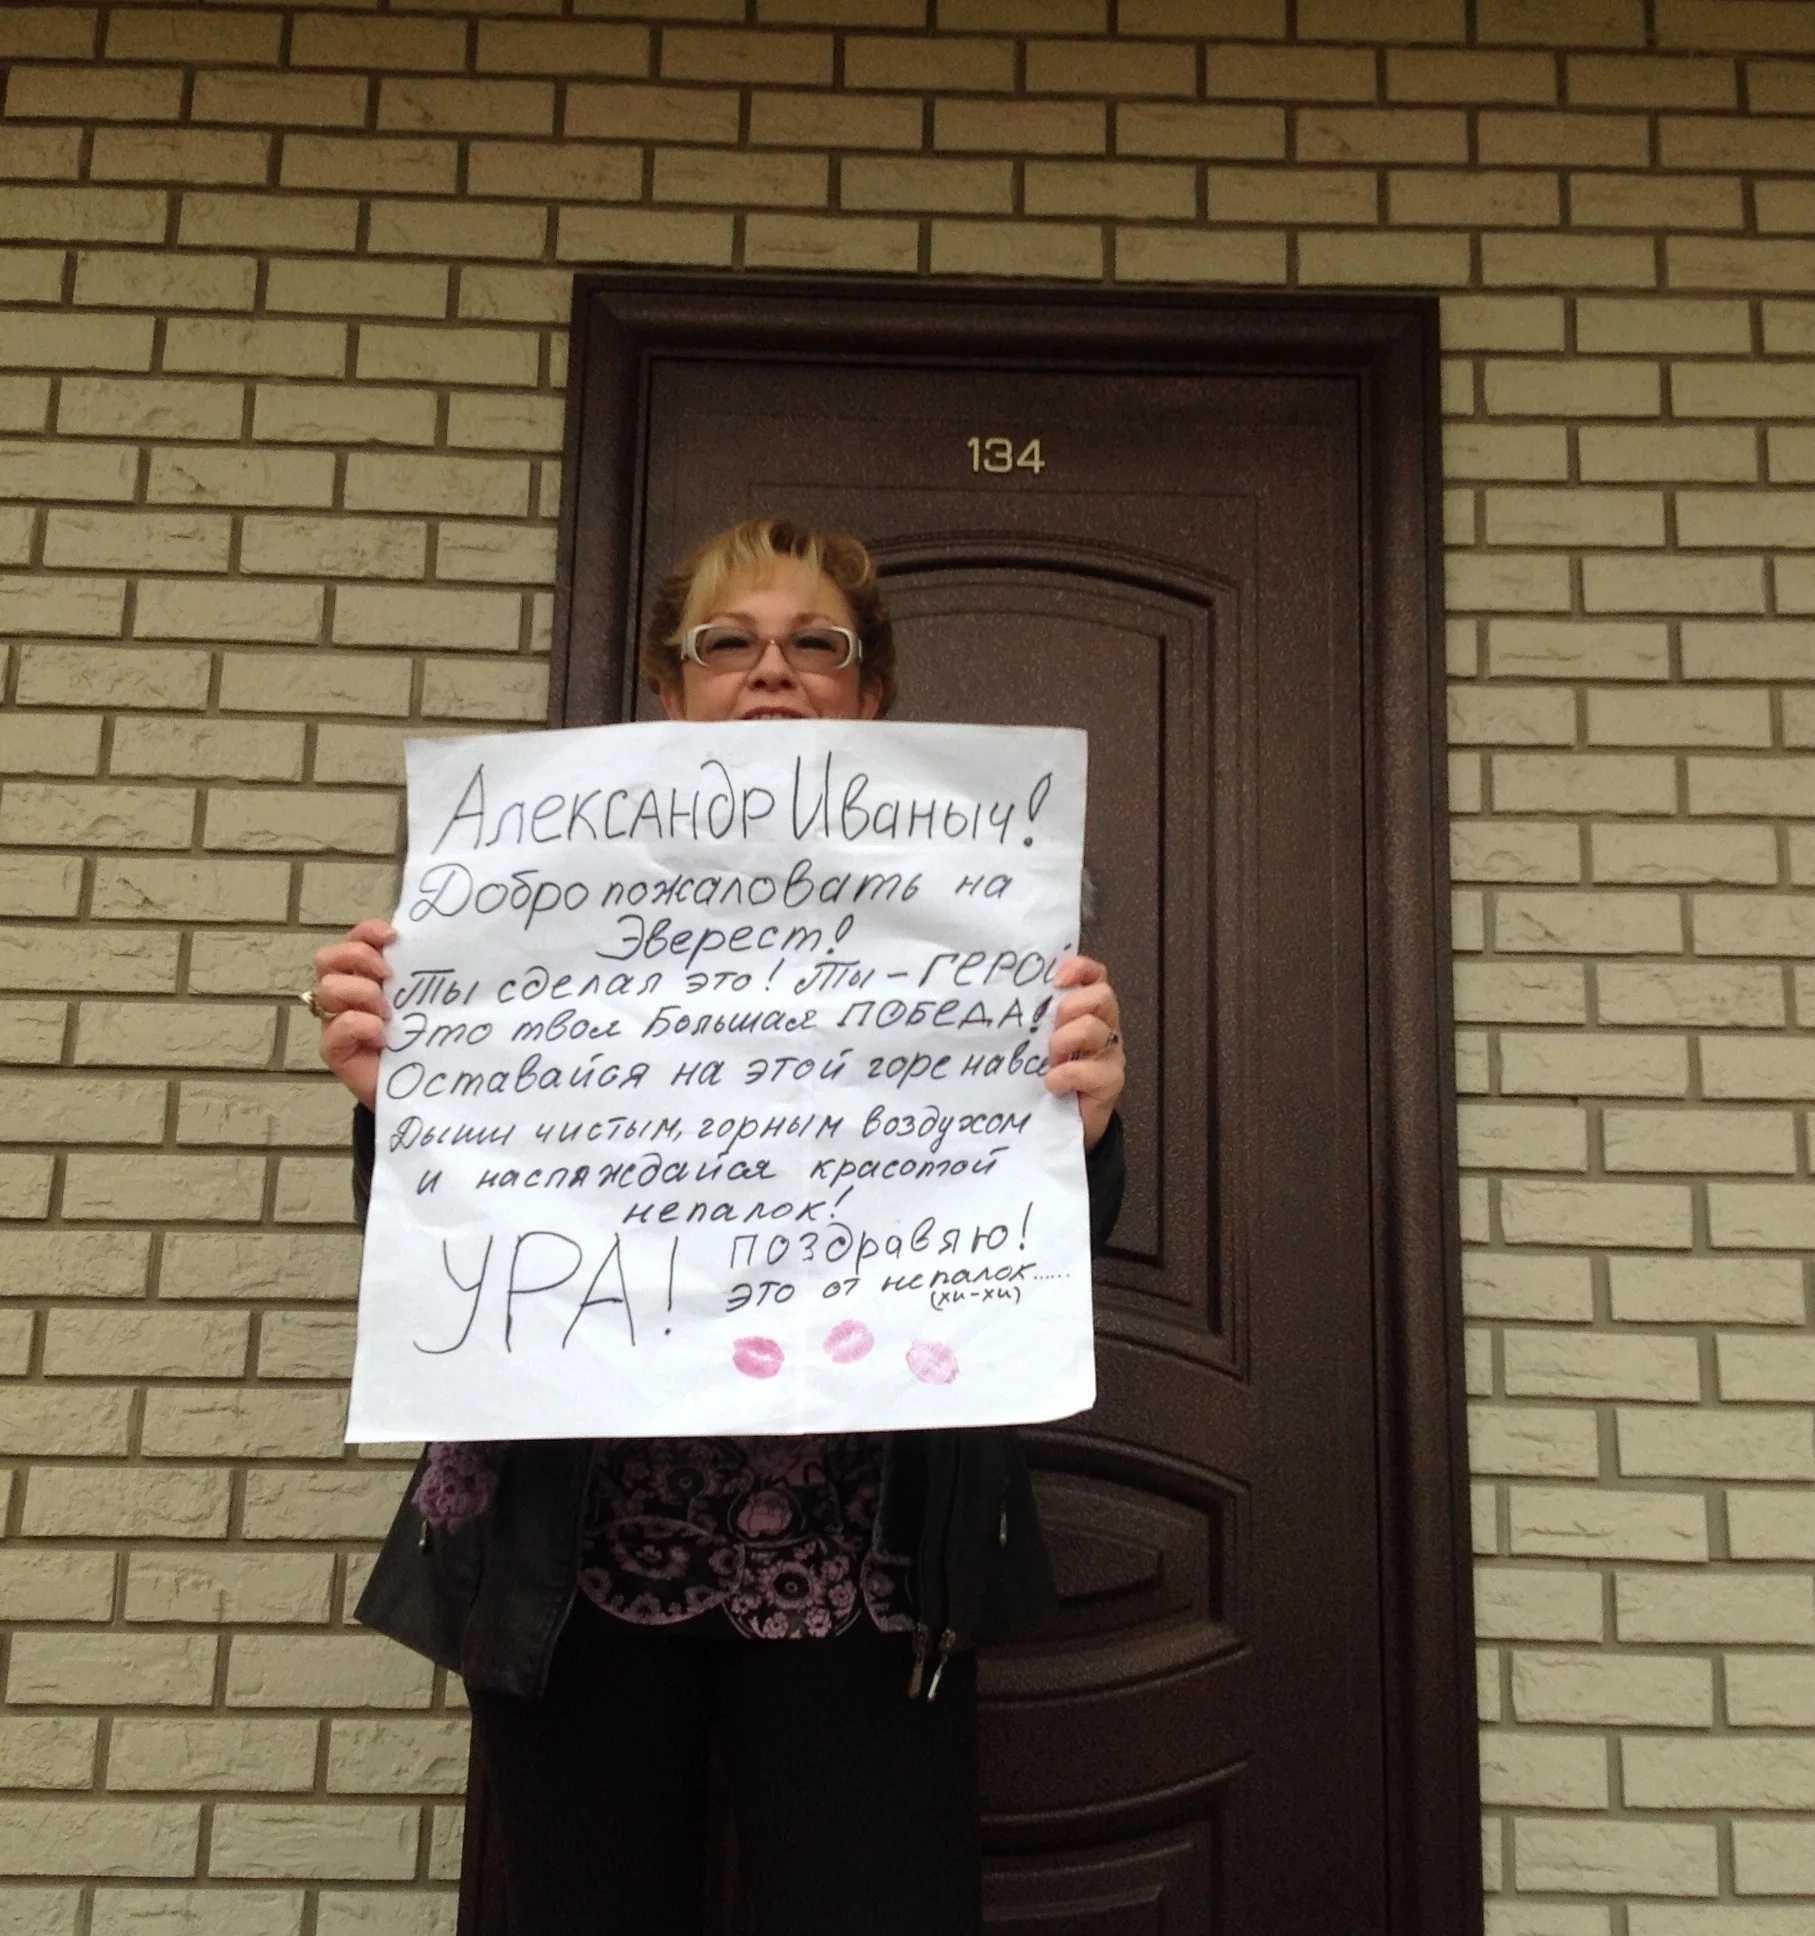 134
Александр Иваныч!
Добро пожаловать на
Эверест!
Ты сделал это! Ты – ГЕРОЙ
Это твоя Большая ПОБЕДА!
Оставайся на этой горе
Дыши чистым, горным воздухом
и наслаждайся красотой
непалок!
УРА! поздравяю!
это от непалок......
(хи-хи)